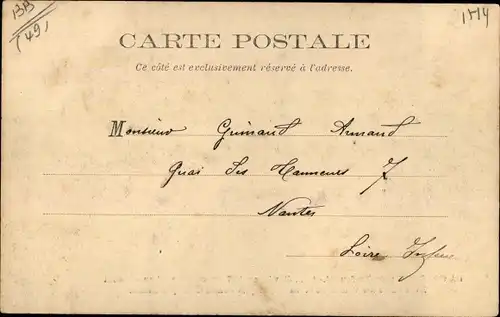 BB
(49)
1514
CARTE POSTALE
Ce côté est exclusivement réservé à l'adresse.
Monsieur Guimaud Armand
Quai des Tanneurs 7
Nantes
Loire Infre